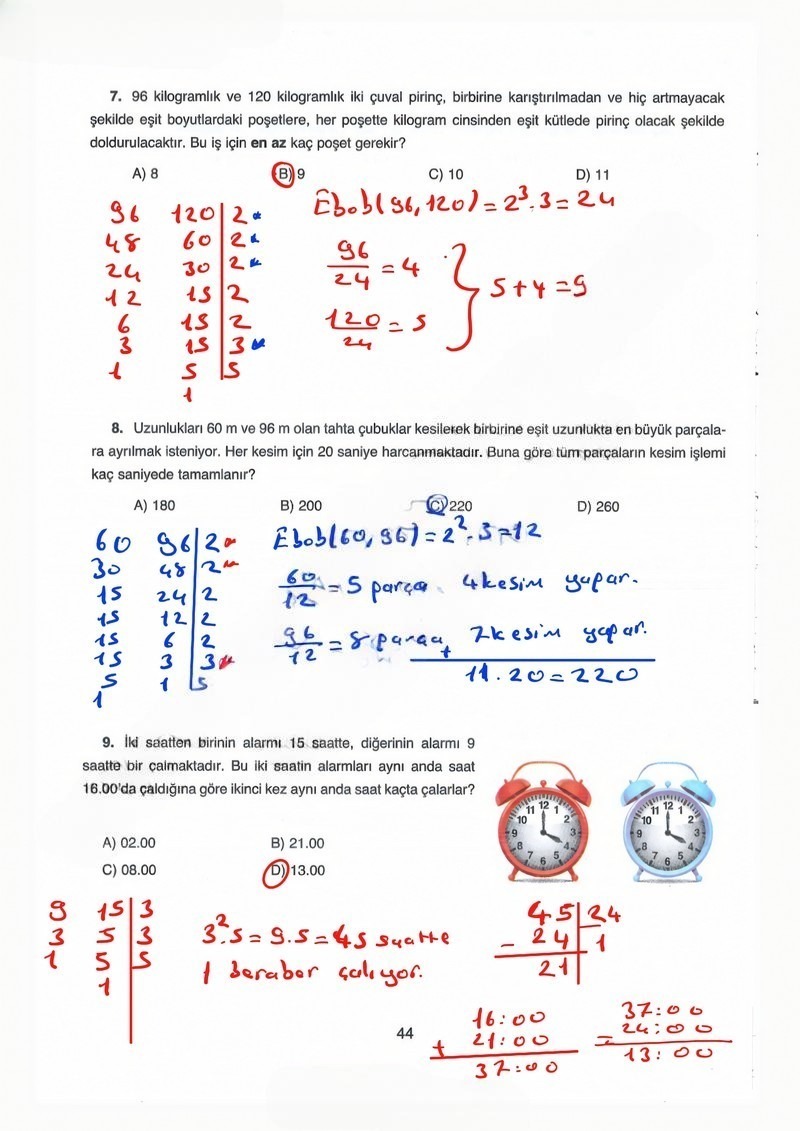 7. 96 kilogramlık ve 120 kilogramlık iki çuval pirinç, birbirine karıştırılmadan ve hiç artmayacak
şekilde eşit boyutlardaki poşetlere, her poşette kilogram cinsinden eşit kütlede pirinç olacak şekilde
doldurulacaktır. Bu iş için en az kaç poşet gerekir?
A) 8 B) 9 C) 10 D) 11
96 120 2* Ebob(96,120) = 2³.3 = 24
48 60 2*
24 30 2*
12 15 2
6 15 2
3 15 3*
1 5 5
1
96/24 = 4
120/24 = 5
5+4 = 9
8. Uzunlukları 60 m ve 96 m olan tahta çubuklar kesilerek birbirine eşit uzunlukta en büyük parçala-
ra ayrılmak isteniyor. Her kesim için 20 saniye harcanmaktadır. Buna göre tüm parçaların kesim işlemi
kaç saniyede tamamlanır?
A) 180 B) 200 C) 220 D) 260
60 96 2* Ebob(60,96) = 2².3 = 12
30 48 2*
15 24 2
15 12 2
15 6 2
15 3 3*
5 1 5
1
60/12 = 5 parça 4 kesim yapar.
96/12 = 8 parça + 7 kesim yapar.
11.20 = 220
9. İki saatten birinin alarmı 15 saatte, diğerinin alarmı 9
saatte bir çalmaktadır. Bu iki saatin alarmları aynı anda saat
16.00'da çaldığına göre ikinci kez aynı anda saat kaçta çalarlar?
A) 02.00 B) 21.00
C) 08.00 D) 13.00
11 12 1
10 2
9 3
8 4
7 6 5
11 12 1
10 2
9 3
8 4
7 6 5
9 15 3
3 5 3
1 5 5
1
3².5 = 9.5 = 45 saatte
1 beraber çalıyor.
45 24
- 24 1
21
16:00
+ 21:00
37:00
37:00
- 24:00
13:00
44